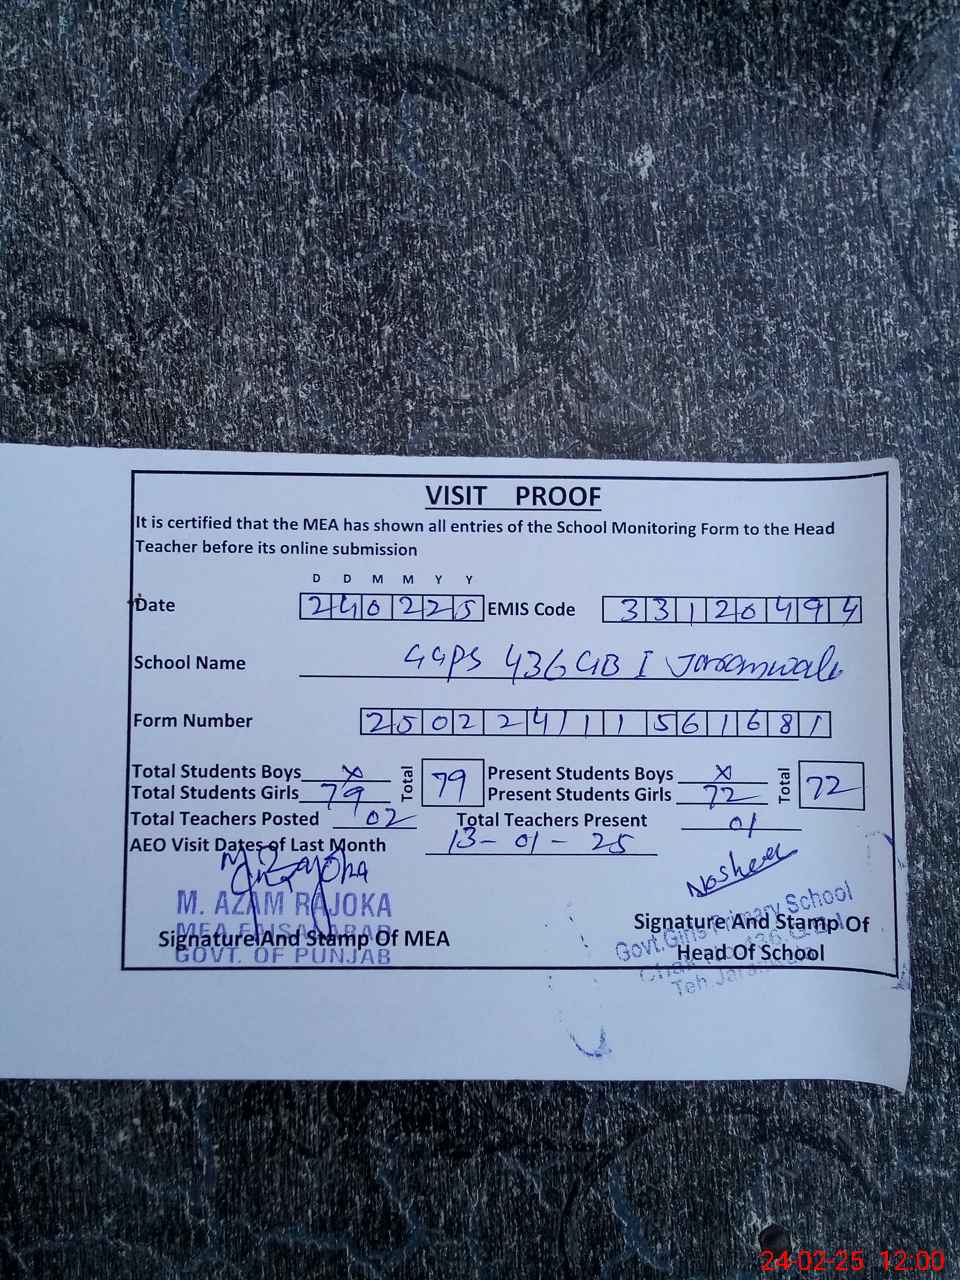 VISIT PROOF
It is certified that the MEA has shown all entries of the School Monitoring Form to the Head
Teacher before its online submission
D D M M Y Y
Date 240225 EMIS Code 33120494
School Name GGPS 436 GB I Jaranwala
Form Number 25022411561681
Total Students Boys x Total 79 Present Students Boys x Total 72
Total Students Girls 79 Present Students Girls 72
Total Teachers Posted 02 Total Teachers Present 01
AEO Visit Dates of Last Month 13-01-25
M. AZAM RAJOKA
MEA FAISALABAD
GOVT. OF PUNJAB
Signature And Stamp Of MEA
Govt. Girls Primary School
Signature And Stamp Of
Head Of School
24-02-25 12:00